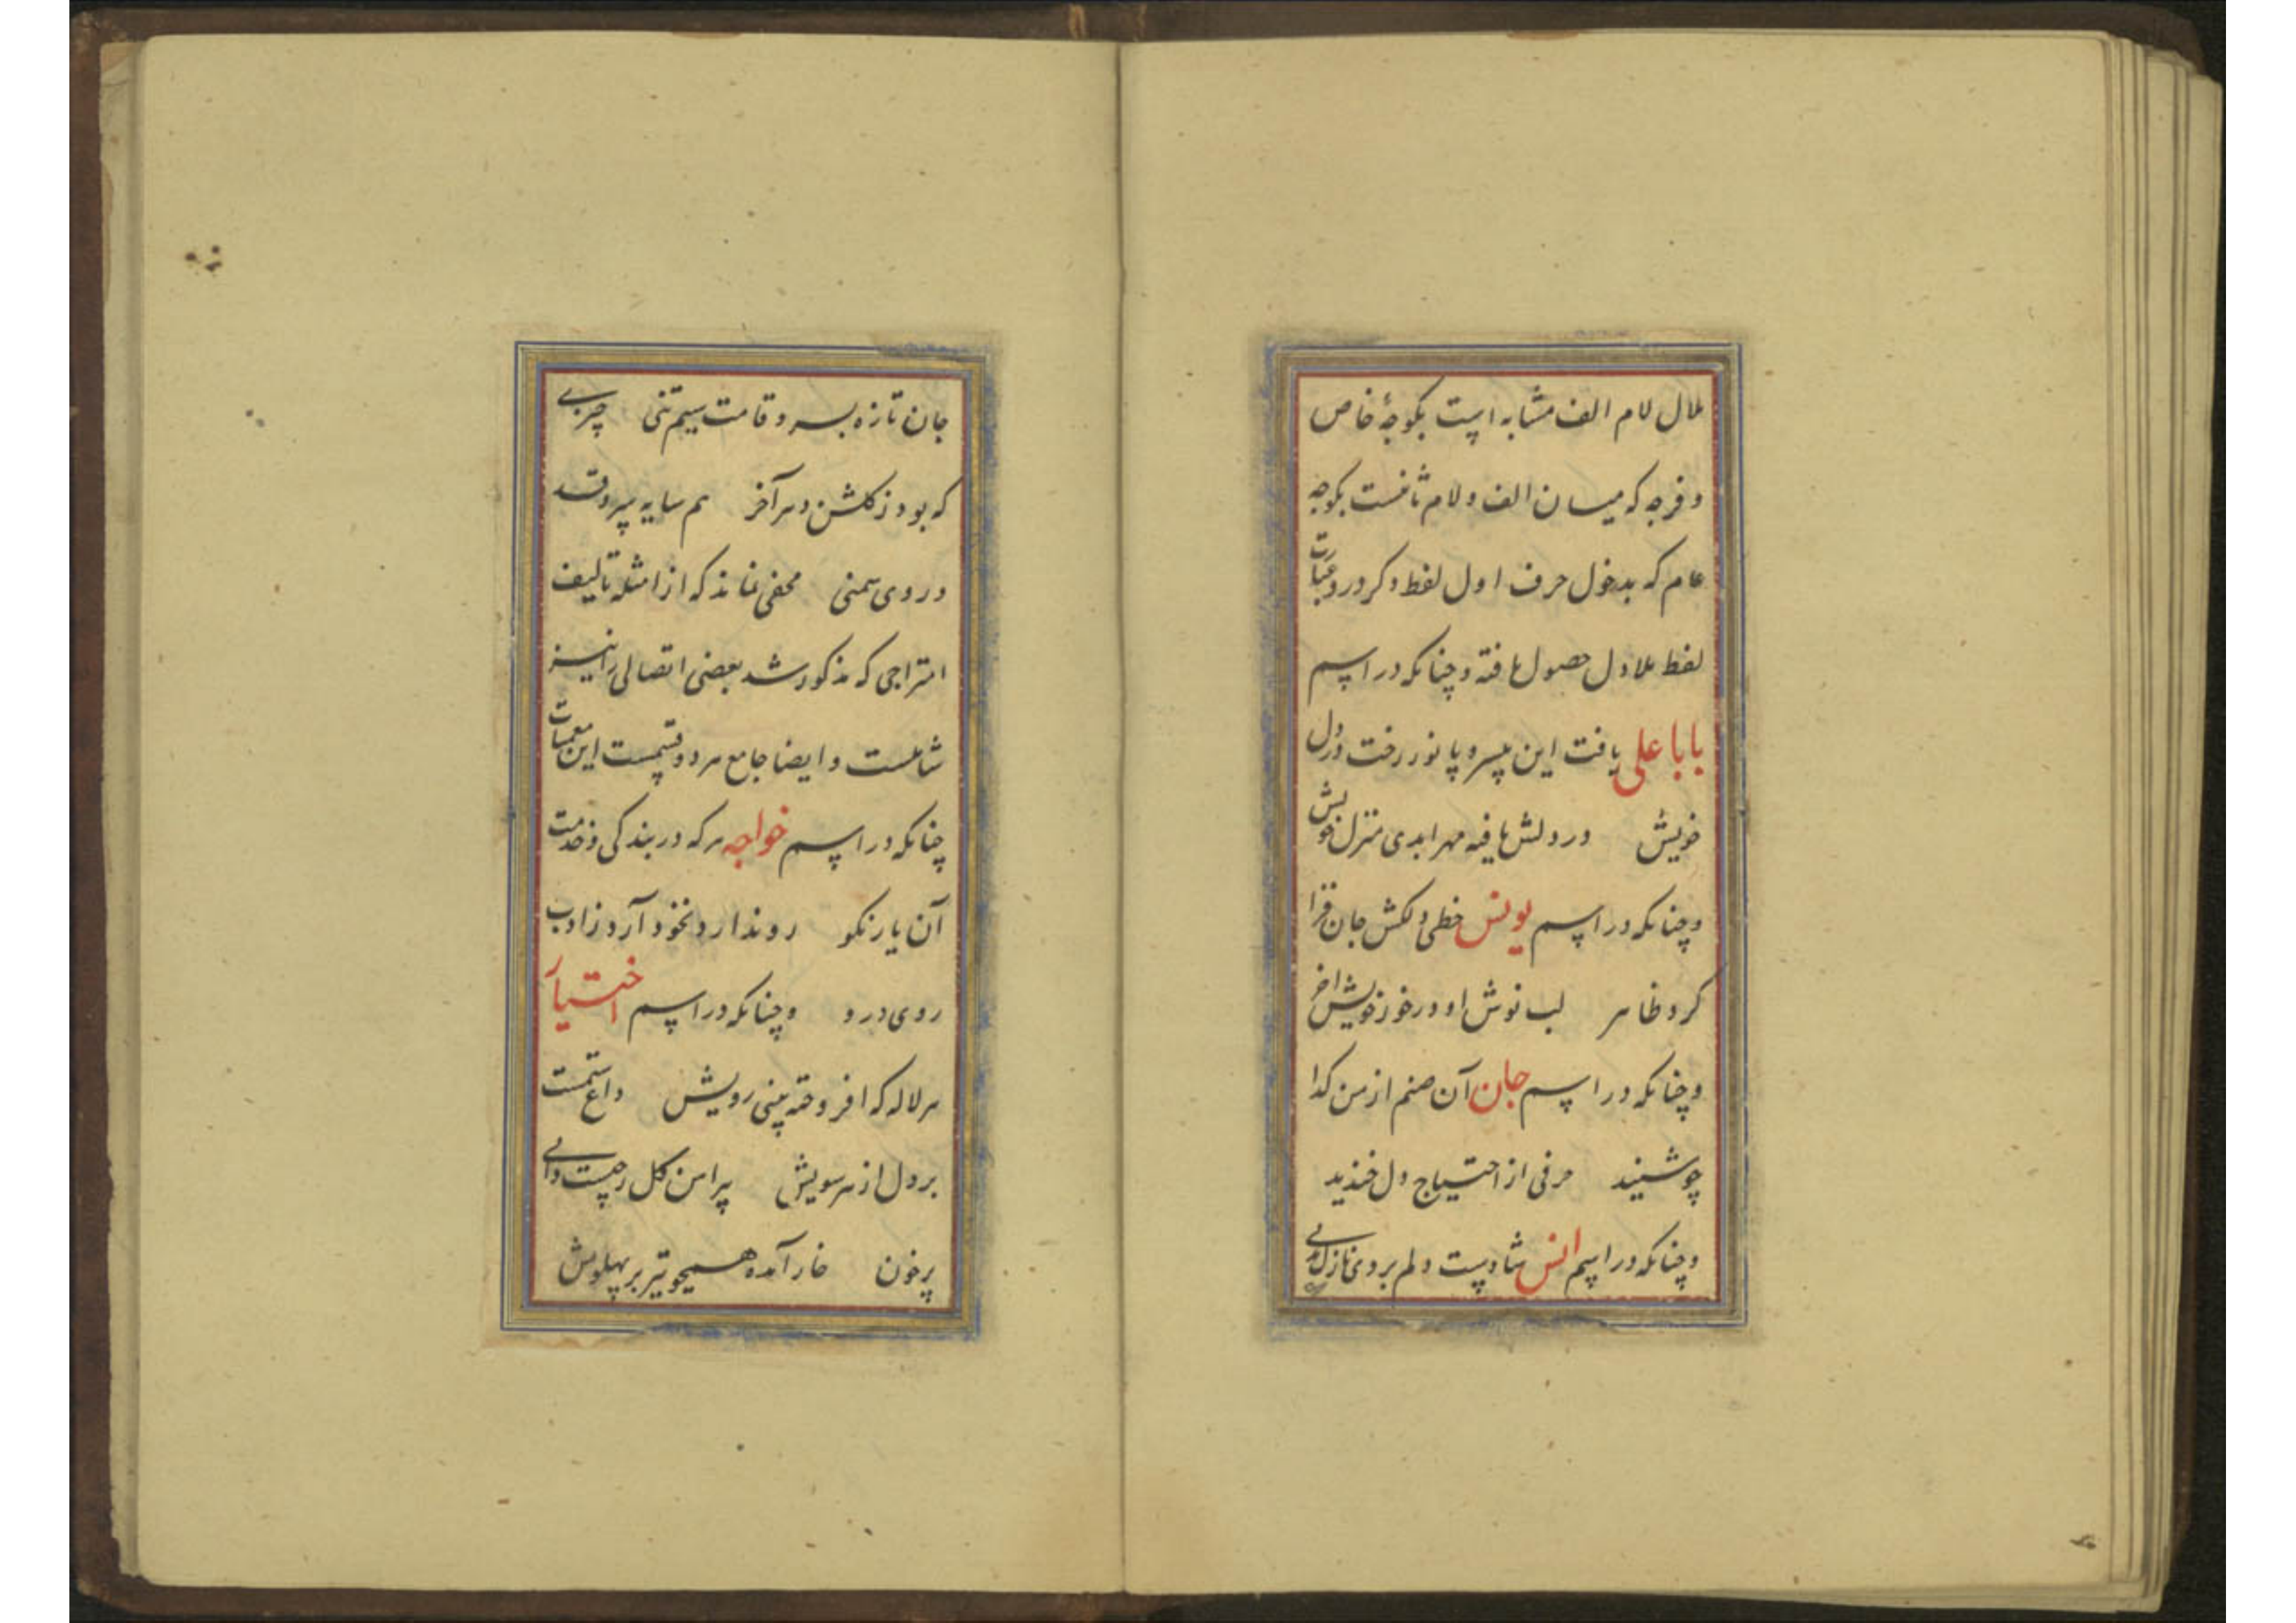 لام الف مشابه است بکوچهٔ خاص
و فرجه که میان الف و لام ثانیست بکوچه
عام که بدخول حرف اول لفظ دکر درو عبارت
لفظ حصول یافته و چنانکه در اسم
بابا علی یافت این بیسر و پا نور رخت در دل
خویش در دلش یافته مهر ابدی منزل خویش
و چنانکه در اسم یونس خطی دلکش جان فزا
کرد ظاهر لب نوش او درخور خویش آخر
و چنانکه در اسم جان آن صنم از من کدا
چو شنید حرفی از احتیاج دل خندید
و چنانکه در اسم انس شادیست دلم بروی نازک
جان تازه بسرو قامت سیم تنی چیزی
که بود ز کلشن دهر آخر هم سایه سرو قد
در روی سمنی مخفی نماند که از امثله تالیف
امتزاجی که مذکور شد بعضی اتصالی را نیز
شاملست و ایضا جامع هر دو قسمست این معمیات
چنانکه در اسم خواجه هر که در بندکی و خدمت
آن یار نکو روندارد نخود آرد ز ادب
روی درو و چنانکه در اسم اختیار
هر لاله که افروخته بینی رویش داغ ستمست
بر دل از هر سویش پیراهن کل
پرخون خار آمده همچو تیر بر پهلویش